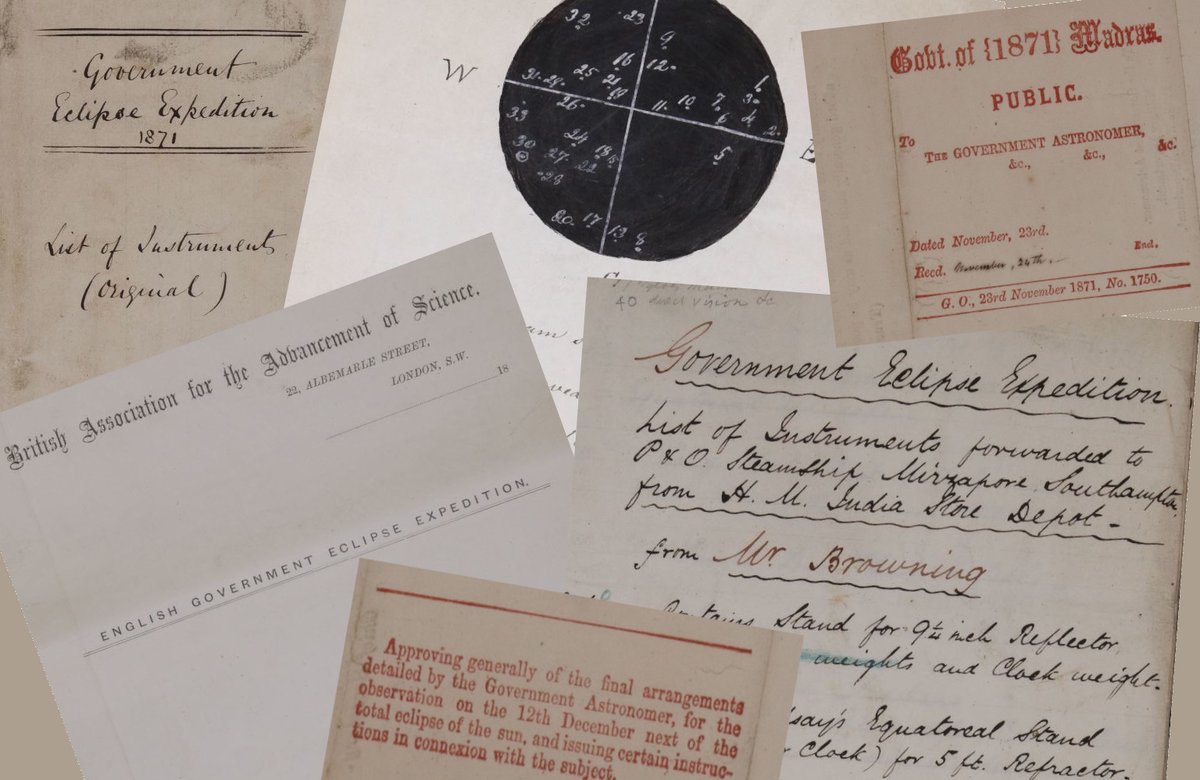 Government
Eclipse Expedition
1871
List of Instruments
(Original)
W
32 23
9
16 12
31 29 25 21
19
26
33
11 10 7 3 1
6 4 2
5
24
30 27 22 18
28
20 17 13 8
Govt. of {1871} Madras.
PUBLIC.
To
THE GOVERNMENT ASTRONOMER,
&c., &c., &c.
Dated November, 23rd.
End.
Recd. November, 24th.
G. O., 23rd November 1871, No. 1750.
British Association for the Advancement of Science.
22, ALBEMARLE STREET,
LONDON, S.W.
18
ENGLISH GOVERNMENT ECLIPSE EXPEDITION.
40 direct vision do
Government Eclipse Expedition.
List of Instruments forwarded to
P & O. Steamship Mirzapore Southampton
from H. M. India Store Depot -
from Mr. Browning
Stand for 9¼ inch Reflector
weights and Clock weight.
Equatoreal Stand
Clock) for 5 ft. Refractor.
Approving generally of the final arrangements
detailed by the Government Astronomer, for the
observation on the 12th December next of the
total eclipse of the sun, and issuing certain instruc-
tions in connexion with the subject.